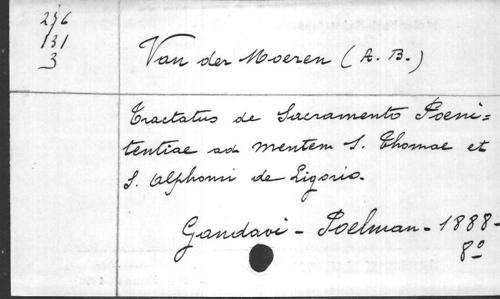 236
131
3
Van der Moeren (A. B.)
Tractatus de Sacramento Poeni=
tentiae ad mentem S. Thomae et
S. Alphonsi de Ligorio.
Gandavi - Poelman - 1888 -
8º